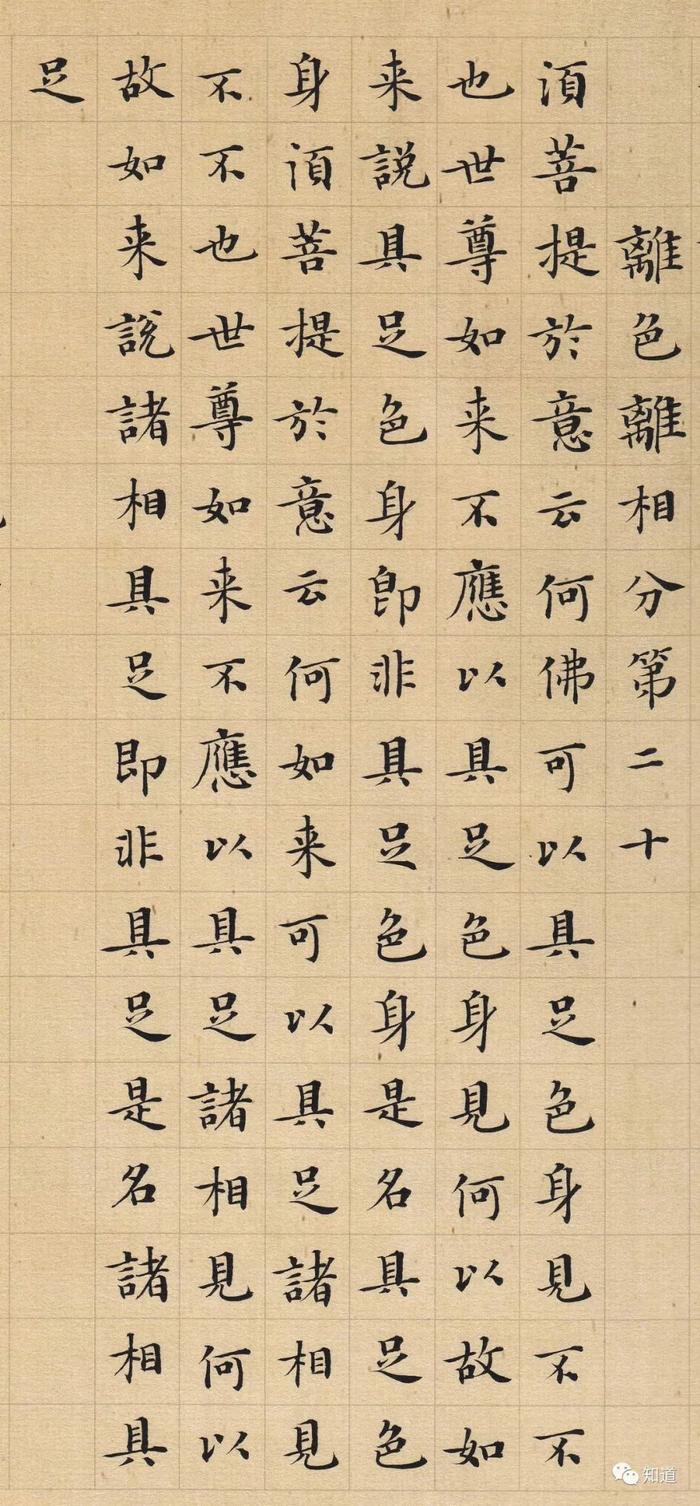 離色離相分第二十
須菩提於意云何佛可以具足色身見不不
也世尊如来不應以具足色身見何以故如
来説具足色身即非具足色身是名具足色
身須菩提於意云何如来可以具足諸相見
不不也世尊如来不應以具足諸相見何以
故如来説諸相具足即非具足是名諸相具
足
知道